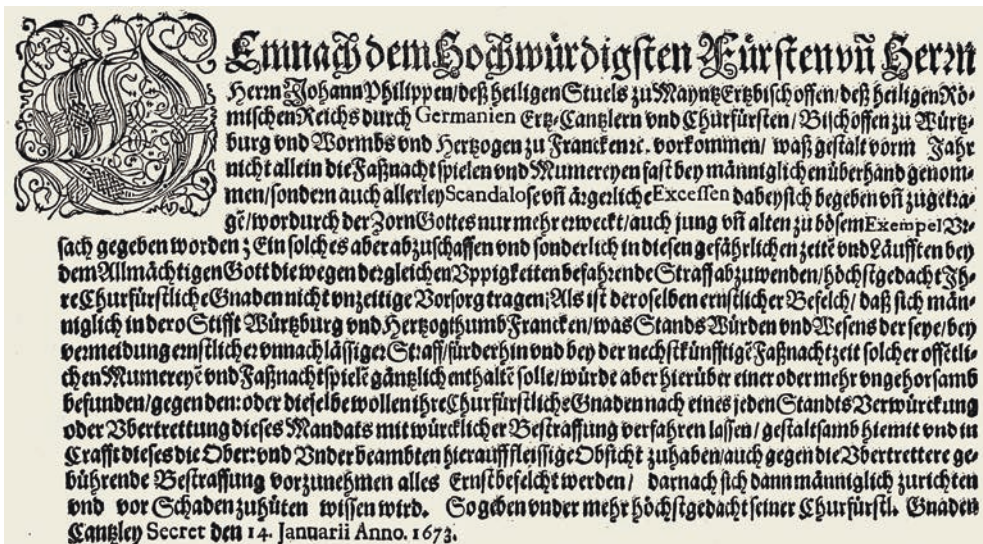 DEmnach dem Hochwürdigsten Fürsten vñ Herrn
Herrn Johann Philippen/ deß heiligen Stuels zu Mayntz Ertzbischoffen/ deß heiligen Rö-
mischen Reichs durch Germanien Ertz-Cantzlern vnd Churfürsten/ Bischoffen zu Würtz-
burg vnd Wormbs vnd Hertzogen zu Francken ꝛc. vorkommen/ waß gestalt vorm Jahr
nicht allein die Faßnachtspielen vnd Mumereyen fast bey männiglichen überhand genom-
men/ sondern auch allerley Scandalose vñ ärgerliche Excessen dabey sich begeben vñ zugetra-
gẽ/ wordurch der Zorn Gottes nur mehr erweckt/ auch jung vñ alten zu bösem Exempel Vr-
sach gegeben worden; Ein solches aber abzuschaffen vnd sonderlich in diesen gefährlichen zeitẽ vnd Läufften bey
dem Allmächtigen Gott die wegen dergleichen Vppigkeiten befahrende Straff abzuwenden/ höchstgedacht Ih-
re Churfürstliche Gnaden nicht vnzeitige Vorsorg tragen; Als ist deroselben ernstlicher Befelch/ daß sich män-
niglich in dero Stifft Würtzburg vnd Hertzogthumb Francken/ was Stands Würden vnd Wesens der seye/ bey
vermeidung ernstlicher vnnachlässiger Straff/ fürderhin vnd bey der nechstkünfftigẽ Faßnachtzeit solcher offẽtli-
chen Mumereyẽ vnd Faßnachtspielẽ gäntzlich enthaltẽ solle/ würde aber hierüber einer oder mehr vngehorsamb
befunden/ gegen den: oder dieselbe wollen ihre Churfürstliche Gnaden nach eines jeden Standts Verwürckung
oder Vbertrettung dieses Mandats mit würcklicher Bestraffung verfahren lassen/ gestaltsamb hiemit vnd in
Crafft dieses die Ober: vnd Vnderbeambten hierauff fleissige Obsicht zuhaben/ auch gegen die Vbertrettere ge-
bührende Bestraffung vorzunehmen alles Ernst befelcht werden/ darnach sich dann männiglich zurichten
vnd vor Schaden zuhüten wissen wird. So geben vnder mehr höchstgedacht seiner Churfürstl. Gnaden
Cantzley Secret den 14. Januarii Anno. 1673.